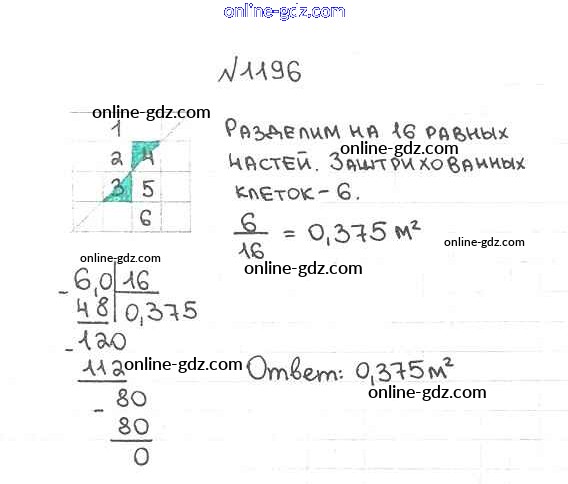 online-gdz.com
N1196
online-gdz.com
1
2 4
3 5
6
Разделим на 16 равных
online-gdz.com
частей. Заштрихованных
клеток - 6.
6/16 = 0,375 м²
online-gdz.com
online-gdz.com
online-gdz.com
- 6,0 | 16
48 | 0,375
- 120
112
- 80
80
0
online-gdz.com
Ответ: 0,375 м²
online-gdz.com
online-gdz.com